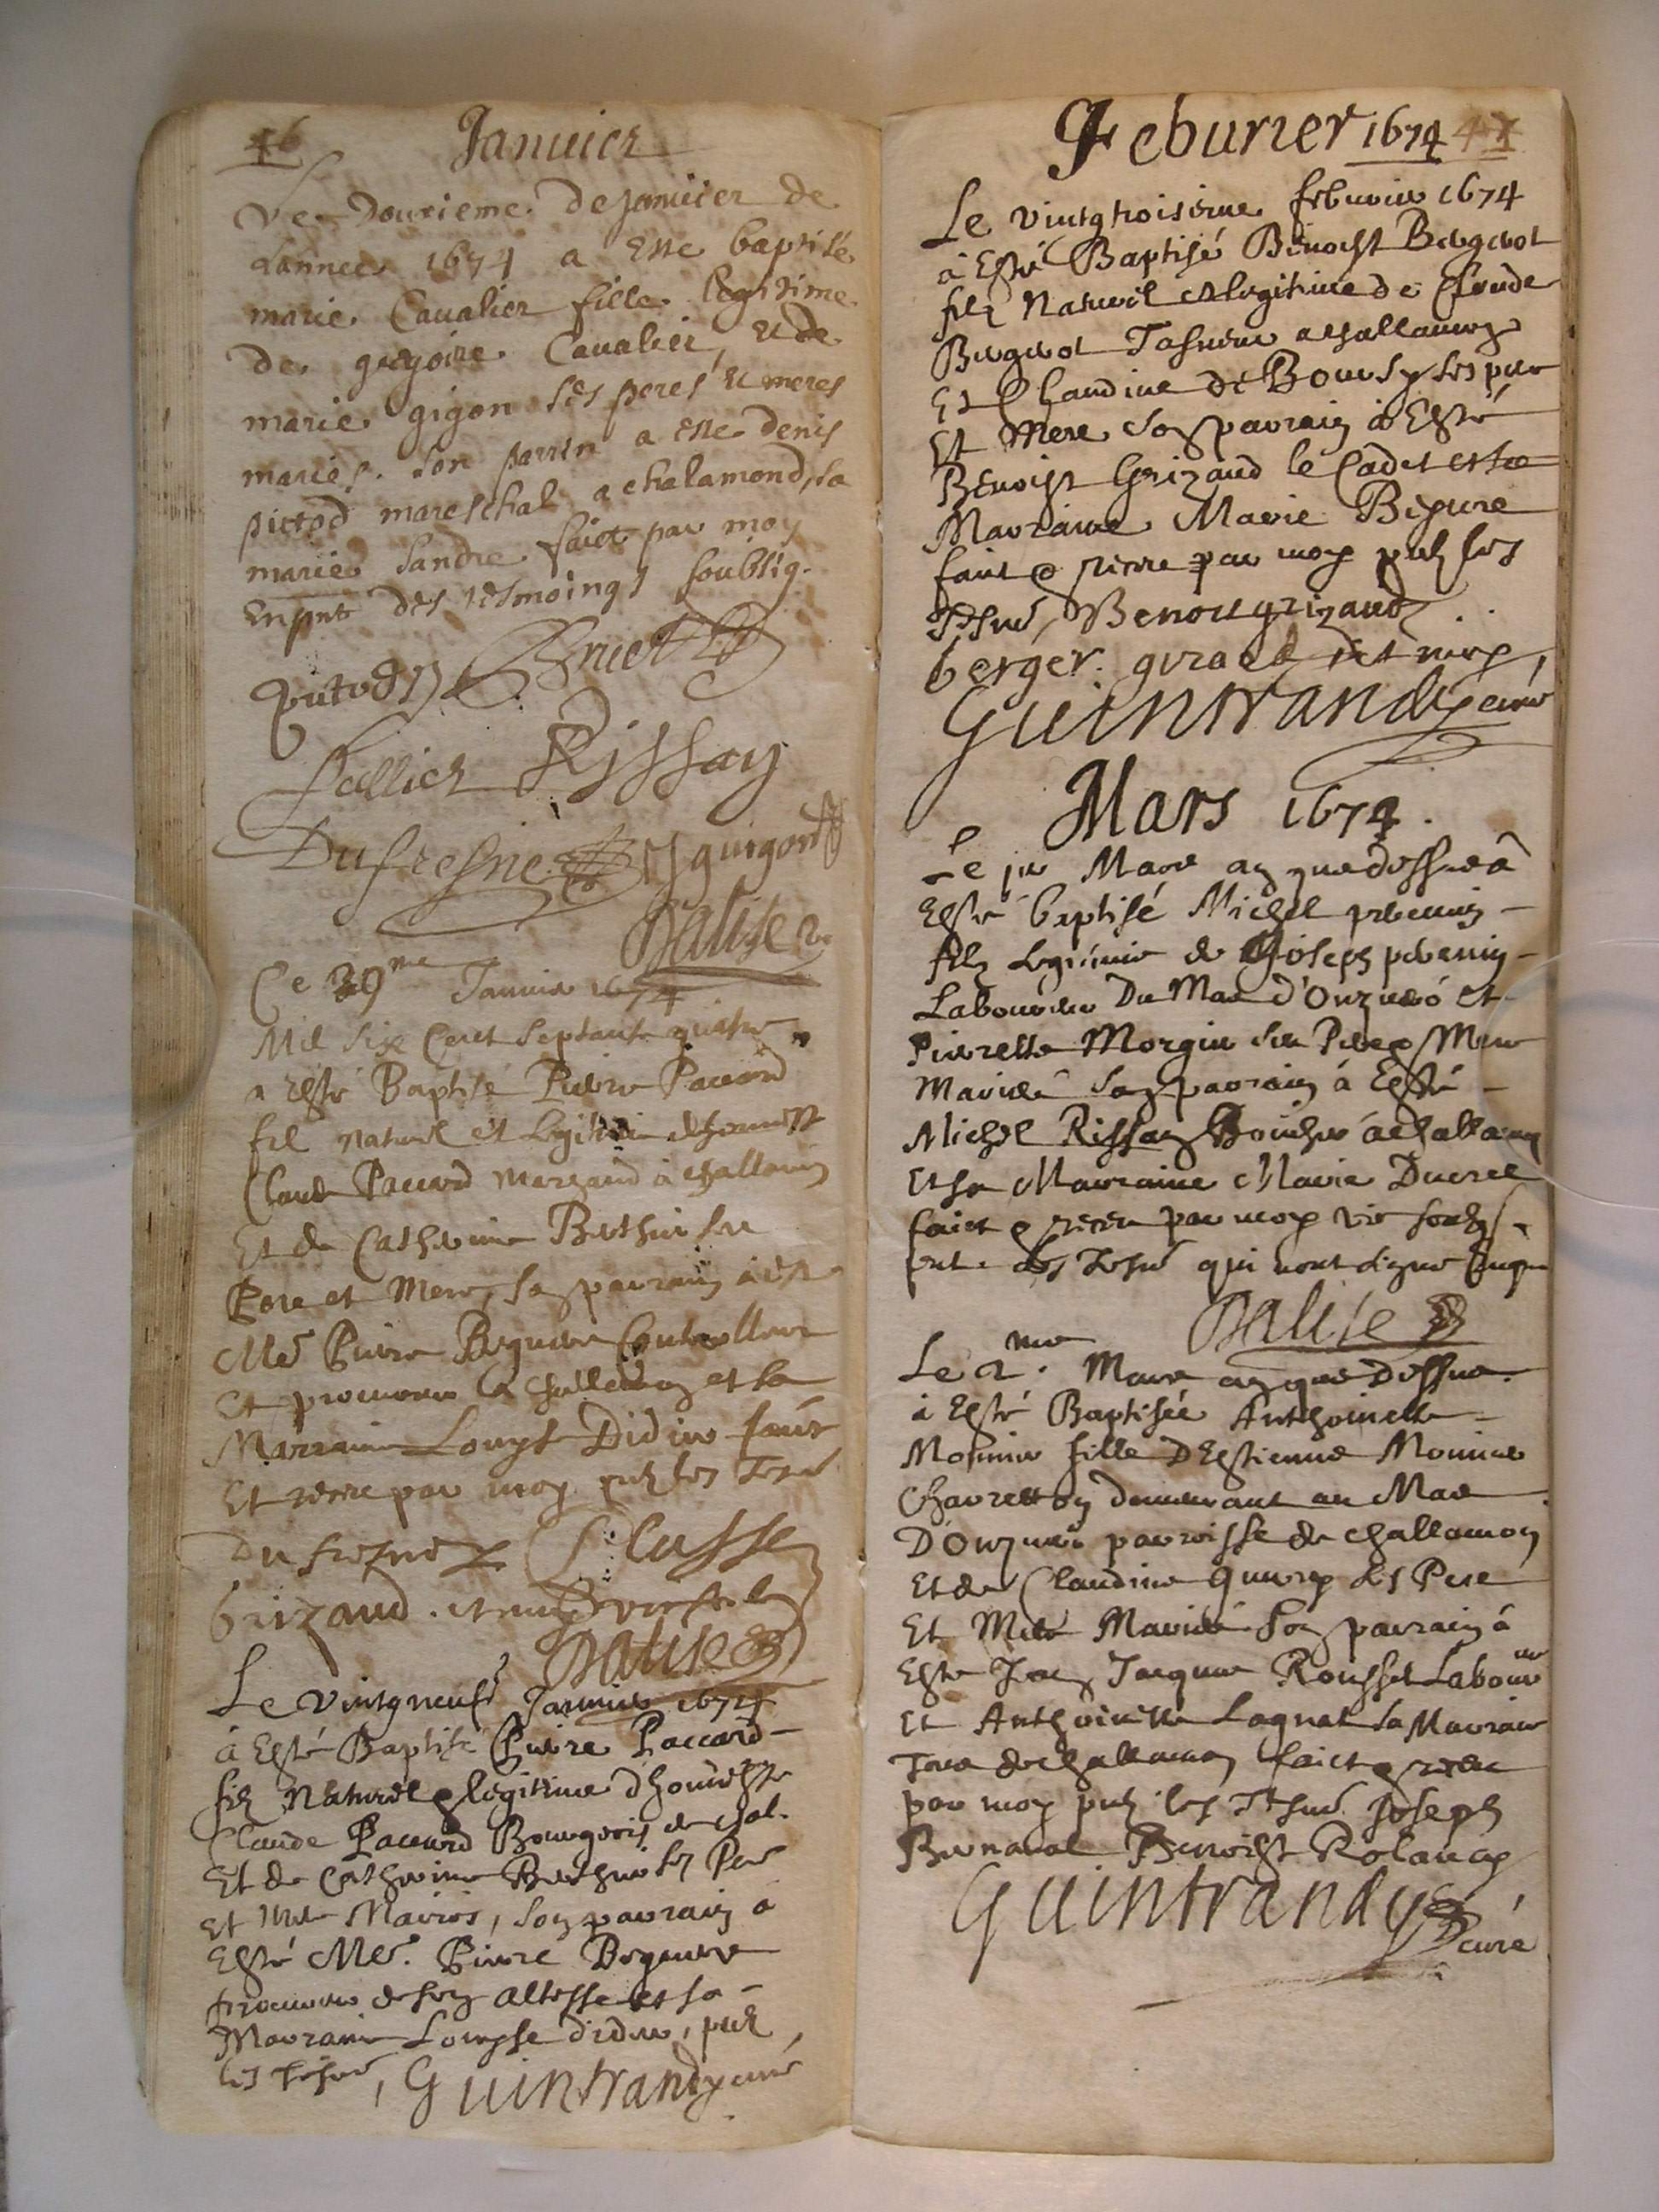 46 Januier
Le Douzieme de januier de
Lannee 1674 a este baptisé
marie Caualier fille legitime
de gregoire Caualier, et de
marie gigon ses peres et meres
mariés. son parrin a este denis
pittod mareschal a chalamond, sa
marie Landre faict par moy
Enpnt des tesmoings soubsig.
pittod
Pellier Rissay
Dufresne guigon
Dalise
Ce 29me Januier 1674
Mil six Cent septante quatre
a esté Baptisé Pierre Paccard
fil naturel et legitime dhonneste
Claude Paccard marchand à challamon
Et de Catherine Berthier ses
Pere et Mere, son parrain a esté
Me Pierre Beguere Controlleur
et procureur a challamon et sa
Marraine Louyse Didier faict
Et receu par moy pnts les Tesm
Dufresne Clusse
Grizaud
Dalise
Le vintgneuf Januier 1674
à Esté Baptisé Pierre Paccard
filz Naturel & legitime d'honneste
Claude Paccard Bourgeois de chal.
Et de Catherine Berthier ses Pere
et Mere Mariés, son parrain à
Esté Me. Pierre Beguere
procureur de son altesse et sa
Marraine Louyse didier, pntz
les tesm, Guintrandy curé
Feburier 1674 47
Le vintgtroisieme feburier 1674
à Esté Baptisé Benoist Bergerot
filz Naturel & legitime de Claude
Bergerot a challamon
Et Claudine de Boursy ses pere
Et Mere son parrain à Esté
Benoist Grizaud le Cadet et sa
Marraine Marie Beguere
faict & receu par moy pntz les
Tesm, Benoit grizaud
berger. giraud et moy,
Guintrandy curé
Mars 1674.
Le jer Mars an que dessus à
Esté baptisé Michel
filz legitime de Joseph
Laboureur Du Mas d'Onzuero et
Pierrette Morgin ses Pere & Mere
Mariés son parrain à Esté
Michel Rissay Boucher à challamon
Et sa Marraine Marie Ducret
faict & receu par moy vic soubs
pnt. des Tesm qui nont signé Enquis
Dalise
Le 2me. Mars an que Dessus
à Esté Baptisée Anthoinette
Monnier fille D'Estienne Monnier
Charretton demeurant au Mas
D'Onzuero parroisse de challamon
Et de Claudine ses Pere
Et Mere Mariés son parrain à
Esté Jean Jacques Rousset Laboureur
Et Anthoinette Lagnat sa Marraine
Tous de challamon faict & receu
par moy pntz les Tesm Joseph
Bernaral Benoist Rolancy
Guintrandy curé